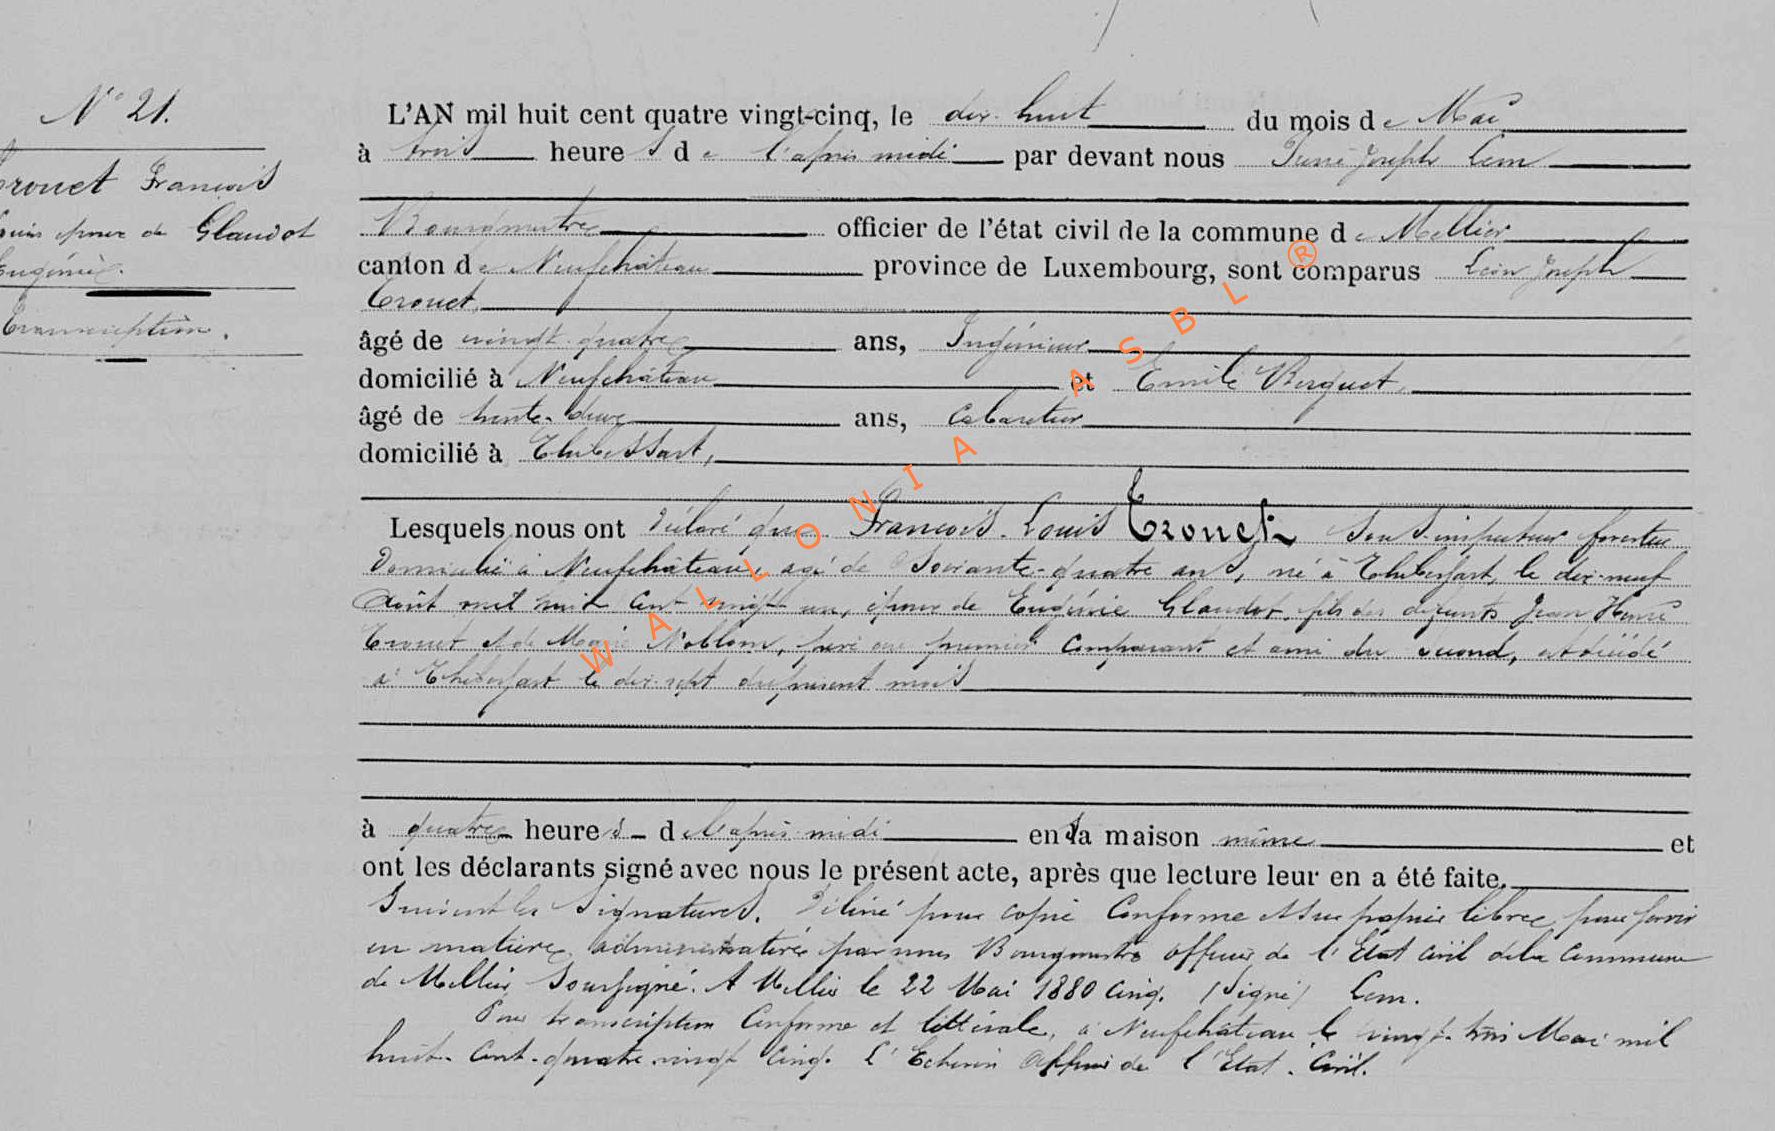 N° 21.
Trouet François
Louis époux de Glaudot
Eugénie.
Transcription.
L'AN mil huit cent quatre vingt-cinq, le dix-huit du mois de Mai
à trois heures de l'après midi par devant nous Pierre Joseph Lem
Bourgmestre officier de l'état civil de la commune de Mellier
canton de Neufchâteau province de Luxembourg, sont comparus Léon Joseph
Trouet,
âgé de vingt-quatre ans, Ingénieur
domicilié à Neufchâteau et Emile Berguet,
âgé de trente-deux ans, cabaretier
domicilié à Thibessart,
Lesquels nous ont déclaré que François-Louis Trouet, Sous-inspecteur forestier
domicilié à Neufchâteau, agé de Soixante-quatre ans, né à Thibessart, le dix-neuf
Août mil huit cent vingt-un, époux de Eugénie Glaudot, fils des défunts Jean Henri
Trouet et de Marie Noblom, père au premier comparant et ami du second, est décédé
à Thibessart le dix-sept du présent mois
à quatre heures de l'après-midi en sa maison même et
ont les déclarants signé avec nous le présent acte, après que lecture leur en a été faite.
Suivent les Signatures. Délivré pour copie Conforme et sur papier libre, pour servir
en matière administrative par nous Bourgmestre officier de l'Etat civil de la commune
de Mellier Soussigné. A Mellier le 22 Mai 1880 cinq. (Signé) Lem.
Pour transcription Conforme et littérale, à Neufchâteau le vingt-trois Mai mil
huit-cent-quatre-vingt cinq. L'Echevin Officier de l'Etat-Civil.
WALLONIA ASBL ®